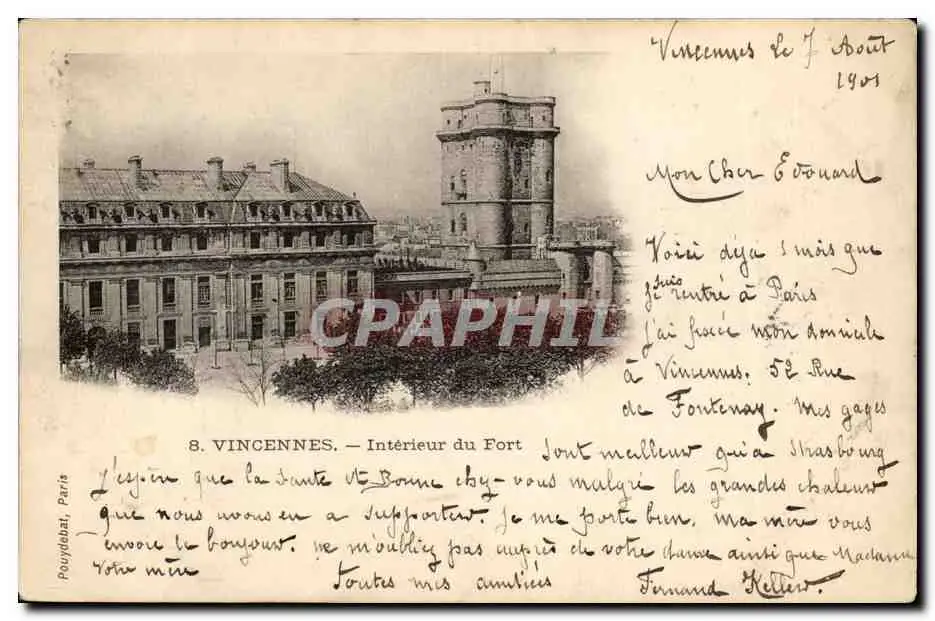 Vincennes Le 7 Août
1901
Mon Cher Edouard
Voici déja 1 mois que
je suis rentré à Paris
J'ai fixée mon domicile
à Vincennes. 52 Rue
de Fontenay. Mes gages
8. VINCENNES. — Intérieur du Fort
Sont meilleur qu'a Strasbourg
J'espère que la Sante et Bonne chez-vous malgré les grandes chaleur
que nous avons eu a supporter. je me porte bien. ma mère vous
envoie le bonjour. ne m'oubliez pas auprès de votre dame ainsi que Madame
Votre mère Toutes mes amitiées Fernand Keller.
Pouydebat, Paris
CPAPHIL